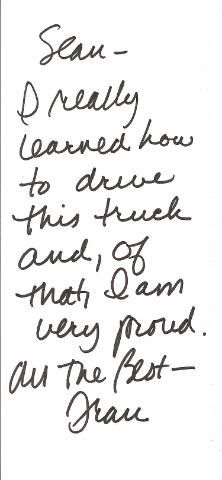 Sean -
I really
learned how
to drive
this truck
and, of
that, I am
very proud.
All The Best -
Fran